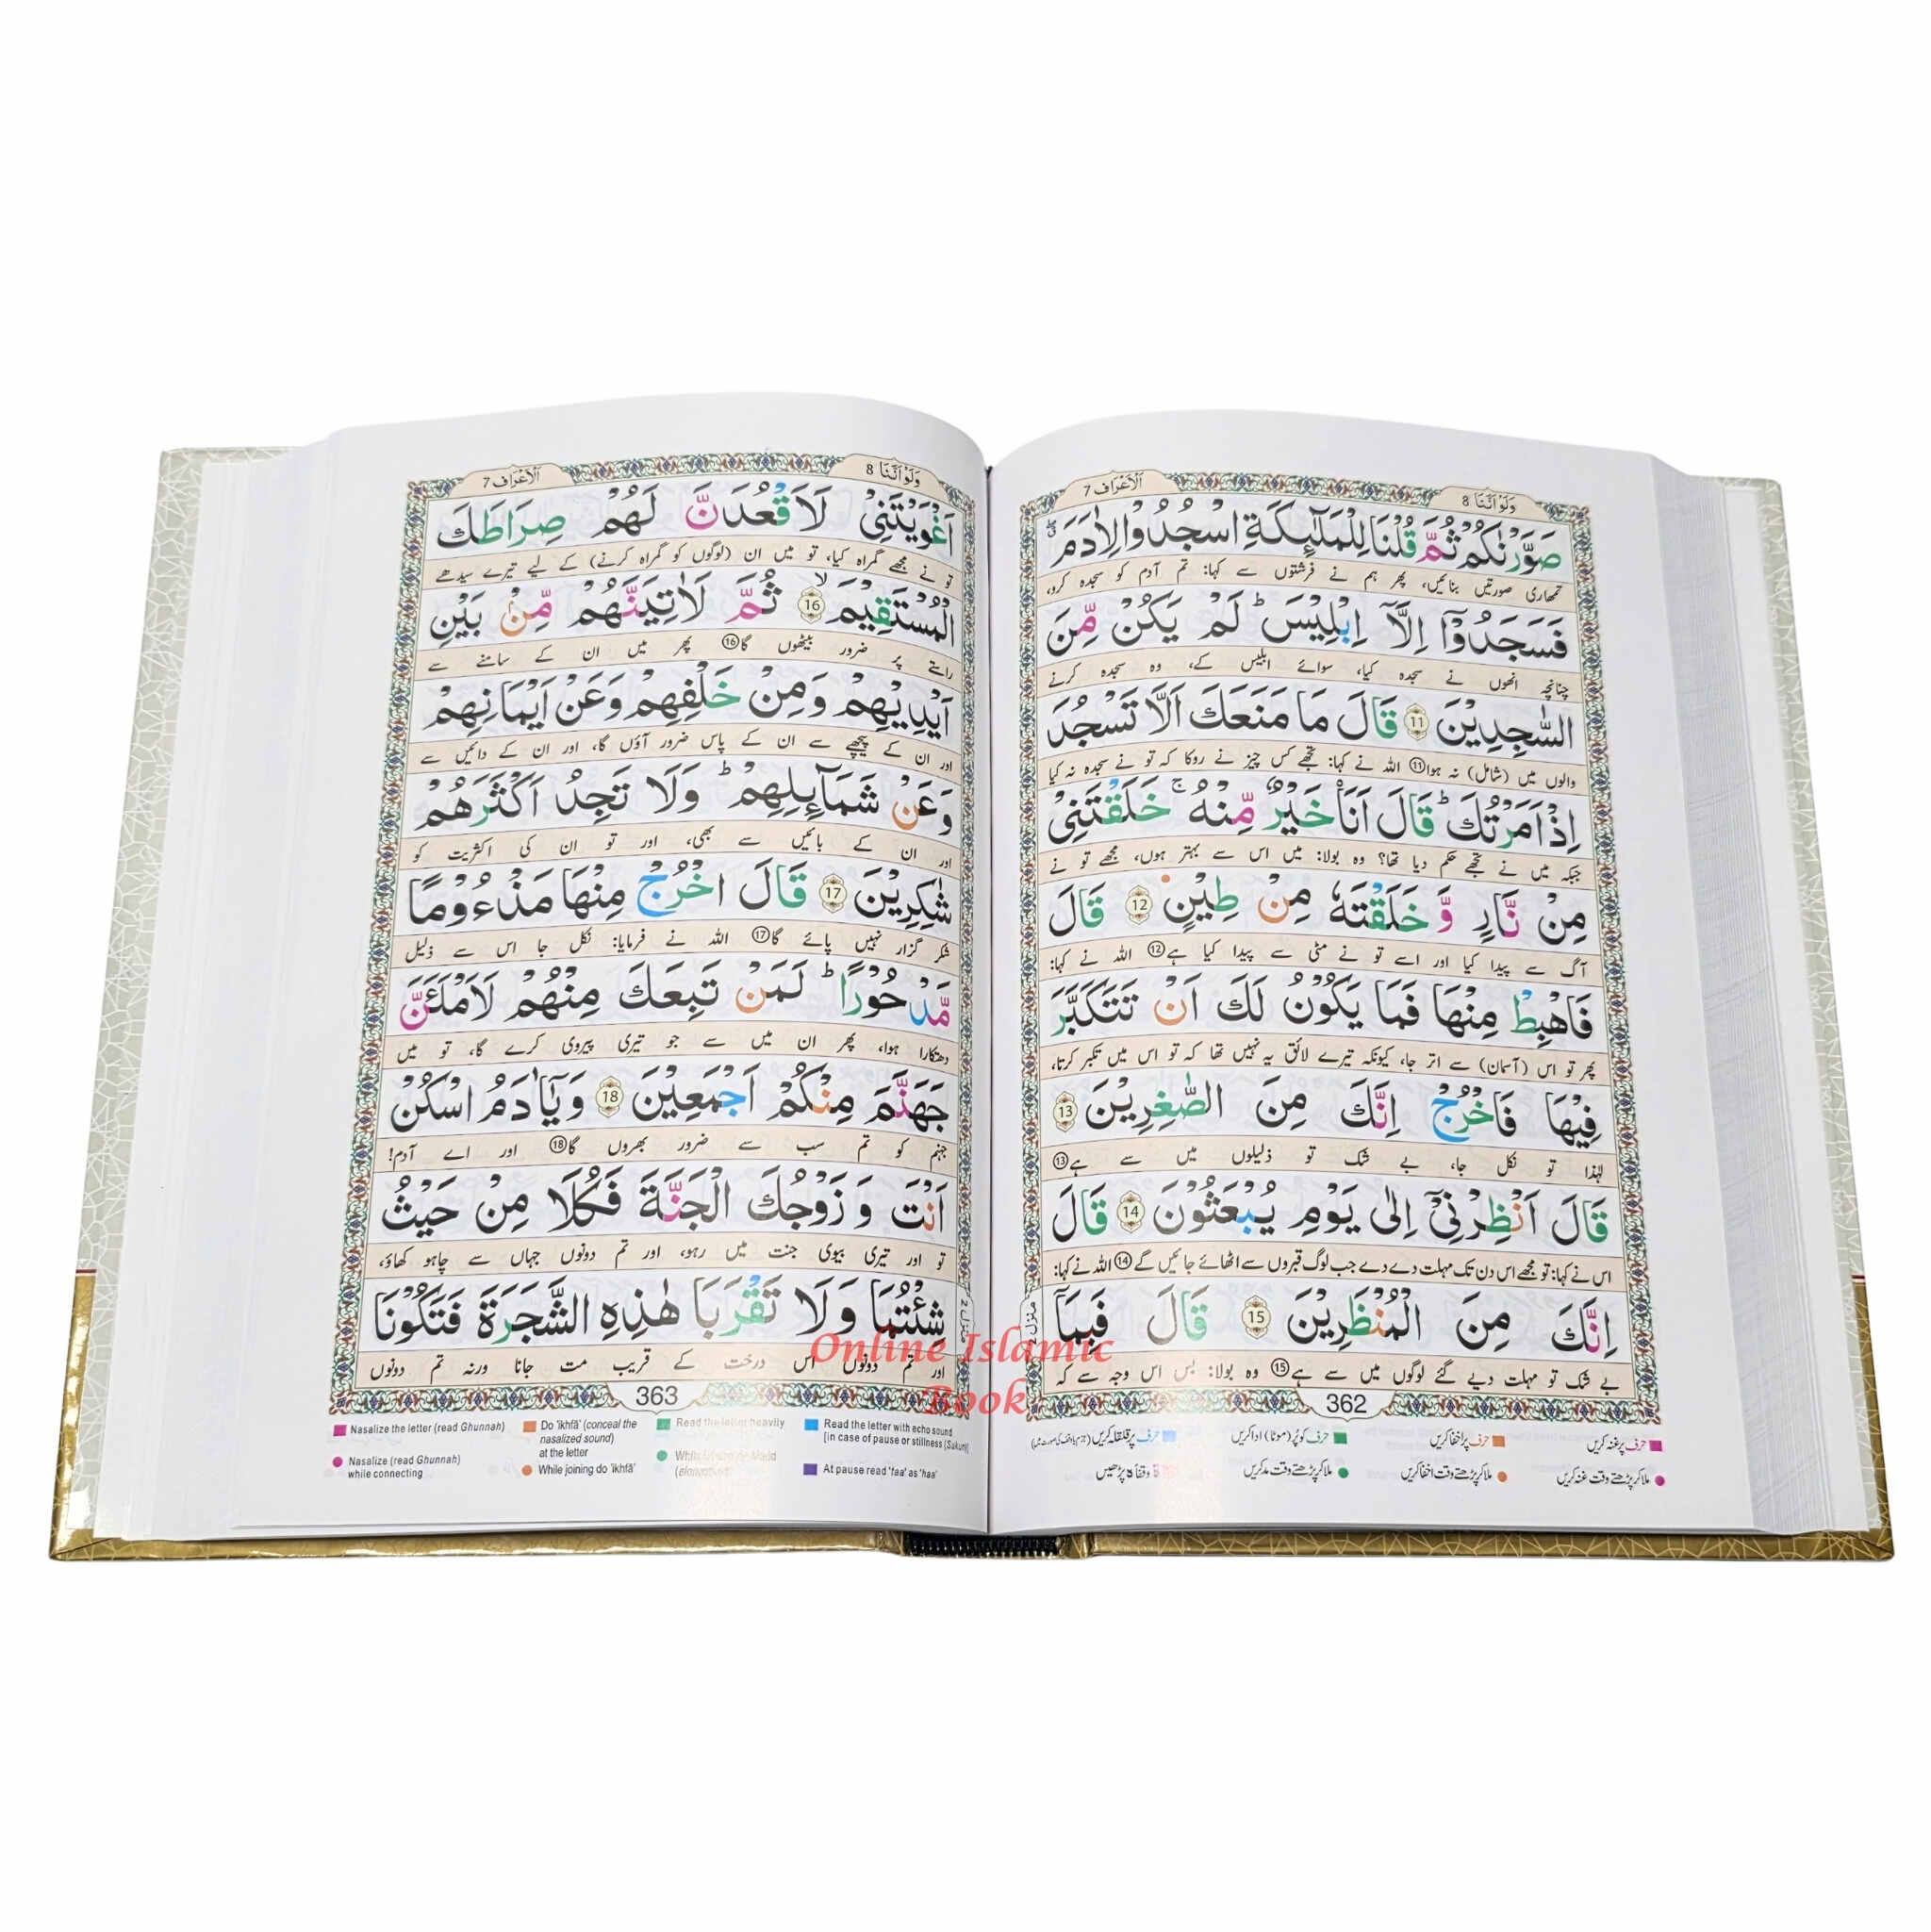 اَلْاَعْرَاف 7
وَلَوْ اَنَّنَا 8
صَوَّرْنٰكُمْ ثُمَّ قُلْنَا لِلْمَلٰٓئِكَةِ اسْجُدُوْا لِاٰدَمَ ۖ
تمھاری صورتیں بنائیں، پھر ہم نے فرشتوں سے کہا: تم آدم کو سجدہ کرو،
فَسَجَدُوْٓا اِلَّآ اِبْلِيْسَ ؕ لَمْ يَكُنْ مِّنَ
چنانچہ انھوں نے سجدہ کیا، سوائے ابلیس کے، وہ سجدہ کرنے
السّٰجِدِيْنَ 11 قَالَ مَا مَنَعَكَ اَلَّا تَسْجُدَ
والوں میں (شامل) نہ ہوا 11 اللہ نے کہا: تجھے کس چیز نے روکا کہ تو نے سجدہ نہ کیا
اِذْ اَمَرْتُكَ ؕ قَالَ اَنَا خَيْرٌ مِّنْهُ ۚ خَلَقْتَنِيْ
جبکہ میں نے تجھے حکم دیا تھا؟ وہ بولا: میں اس سے بہتر ہوں، مجھے تو نے
مِنْ نَّارٍ وَّ خَلَقْتَهٗ مِنْ طِيْنٍ 12 قَالَ
آگ سے پیدا کیا اور اسے تو نے مٹی سے پیدا کیا ہے 12 اللہ نے کہا:
فَاهْبِطْ مِنْهَا فَمَا يَكُوْنُ لَكَ اَنْ تَتَكَبَّرَ
پھر تو اس (آسمان) سے اتر جا، کیونکہ تیرے لائق یہ نہیں تھا کہ تو اس میں تکبر کرتا،
فِيْهَا فَاخْرُجْ اِنَّكَ مِنَ الصّٰغِرِيْنَ 13
لہٰذا تو نکل جا، بے شک تو ذلیلوں میں سے ہے 13
قَالَ اَنْظِرْنِيْٓ اِلٰى يَوْمِ يُبْعَثُوْنَ 14 قَالَ
اس نے کہا: تو مجھے اس دن تک مہلت دے دے جب لوگ قبروں سے اٹھائے جائیں گے 14 اللہ نے کہا:
اِنَّكَ مِنَ الْمُنْظَرِيْنَ 15 قَالَ فَبِمَآ
بے شک تو مہلت دیے گئے لوگوں میں سے ہے 15 وہ بولا: بس اس وجہ سے کہ
منزل 2
362
حرف پر غنہ کریں
حرف پر اخفا کریں
حرف کو پُر (موٹا) ادا کریں
حرف پر قلقلہ کریں
ملا کر پڑھتے وقت غنہ کریں
ملا کر پڑھتے وقت اخفا کریں
ملا کر پڑھتے وقت مد کریں
اَلْاَعْرَاف 7
وَلَوْ اَنَّنَا 8
اَغْوَيْتَنِيْ لَاَقْعُدَنَّ لَهُمْ صِرَاطَكَ
تو نے مجھے گمراہ کیا، تو میں ان (لوگوں کو گمراہ کرنے) کے لیے تیرے سیدھے
الْمُسْتَقِيْمَ ۙ 16 ثُمَّ لَاٰتِيَنَّهُمْ مِّنْۢ بَيْنِ
راستے پر ضرور بیٹھوں گا 16 پھر میں ان کے سامنے سے
اَيْدِيْهِمْ وَمِنْ خَلْفِهِمْ وَعَنْ اَيْمَانِهِمْ
اور ان کے پیچھے سے ان کے پاس ضرور آؤں گا، اور ان کے دائیں سے
وَعَنْ شَمَآئِلِهِمْ ؕ وَلَا تَجِدُ اَكْثَرَهُمْ
اور ان کے بائیں سے بھی، اور تو ان کی اکثریت کو
شٰكِرِيْنَ 17 قَالَ اخْرُجْ مِنْهَا مَذْءُوْمًا
شکر گزار نہیں پائے گا 17 اللہ نے فرمایا: نکل جا اس سے ذلیل
مَّدْحُوْرًا ؕ لَمَنْ تَبِعَكَ مِنْهُمْ لَاَمْلَـَٔنَّ
دھتکارا ہوا، پھر ان میں سے جو تیری پیروی کرے گا، تو میں
جَهَنَّمَ مِنْكُمْ اَجْمَعِيْنَ 18 وَيٰٓاٰدَمُ اسْكُنْ
جہنم کو تم سب سے ضرور بھروں گا 18 اور اے آدم!
اَنْتَ وَ زَوْجُكَ الْجَنَّةَ فَكُلَا مِنْ حَيْثُ
تو اور تیری بیوی جنت میں رہو، اور تم دونوں جہاں سے چاہو کھاؤ،
شِئْتُمَا وَلَا تَقْرَبَا هٰذِهِ الشَّجَرَةَ فَتَكُوْنَا
اور تم دونوں اس درخت کے قریب مت جانا ورنہ تم دونوں
منزل 2
363
Nasalize the letter (read Ghunnah)
Do 'ikhfā' (conceal the nasalized sound) at the letter
Read the letter heavily
Read the letter with echo sound [in case of pause or stillness (Sakun)]
Nasalize (read Ghunnah) while connecting
While joining do 'ikhfā'
At pause read 'taa' as 'haa'
Online Islamic
Book